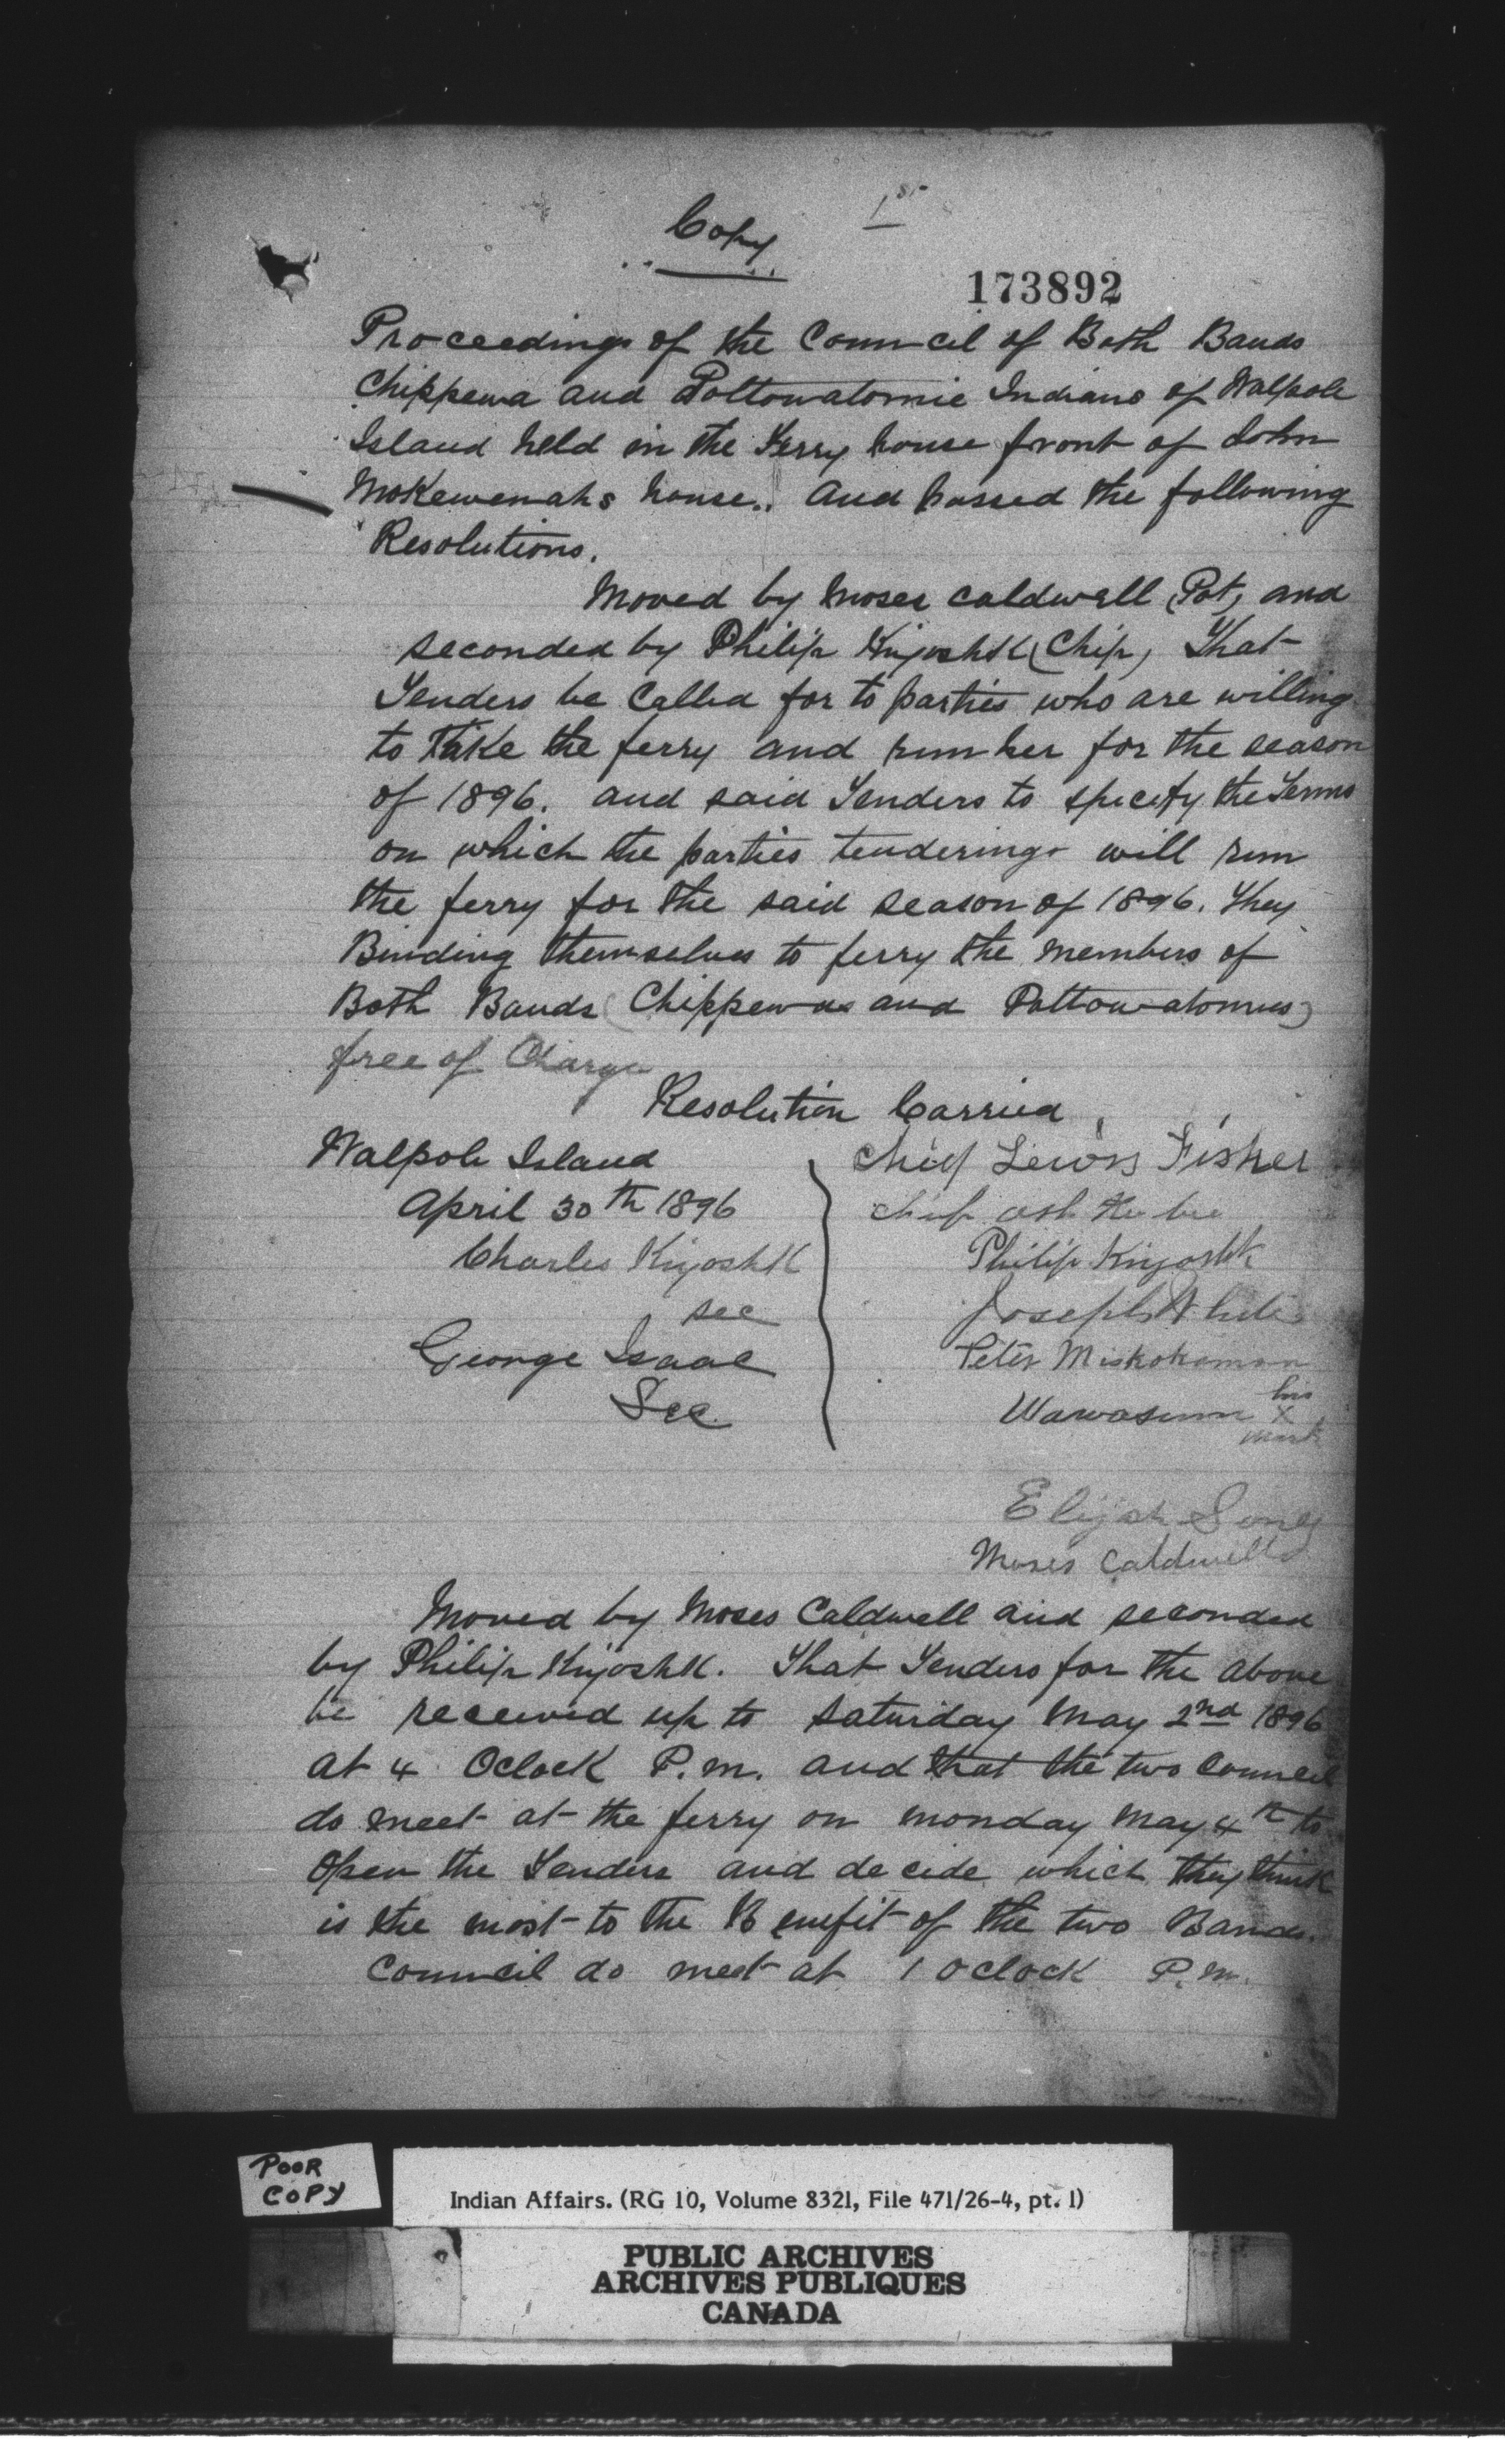 Copy
1st
173892
Proceedings of the Council of Both Bands
Chippewa and Pottowatomie Indians of Walpole
Island held in the Ferry house front of John
Mokewenahs house. And passed the following
Resolutions.
Moved by Moses Caldwell (Pot) and
seconded by Philip Kiyoshk (Chip) That
Tenders be Called for to parties who are willing
to Take the ferry and run her for the season
of 1896. and said Tenders to specify the Terms
on which the parties tendering will run
the ferry for the said season of 1896. They
Binding themselves to ferry the members of
Both Bands (Chippewas and Pottowatomies)
free of Charge
Resolution Carried
Walpole Island
April 30th 1896
Charles Kiyoshk
Sec
George Isaac
Sec
Chief Lewis Fisher
Chief ash
Philip Kiyoshk
Joseph White
Peter Miskokoman
Wawasum his
X
mark
Elijah
Moses Caldwell
Moved by Moses Caldwell and seconded
by Philip Kiyoshk. That Tenders for the above
be received up to Saturday May 2nd 1896
at 4 Oclock P.m. and that the two Council
do meet at the ferry on monday May 4th to
Open the Tenders and decide which they think
is the most to the Benefit of the two Bands.
Council do meet at 1 oclock P.m.
POOR
COPY
Indian Affairs. (RG 10, Volume 8321, File 471/26-4, pt. 1)
PUBLIC ARCHIVES
ARCHIVES PUBLIQUES
CANADA